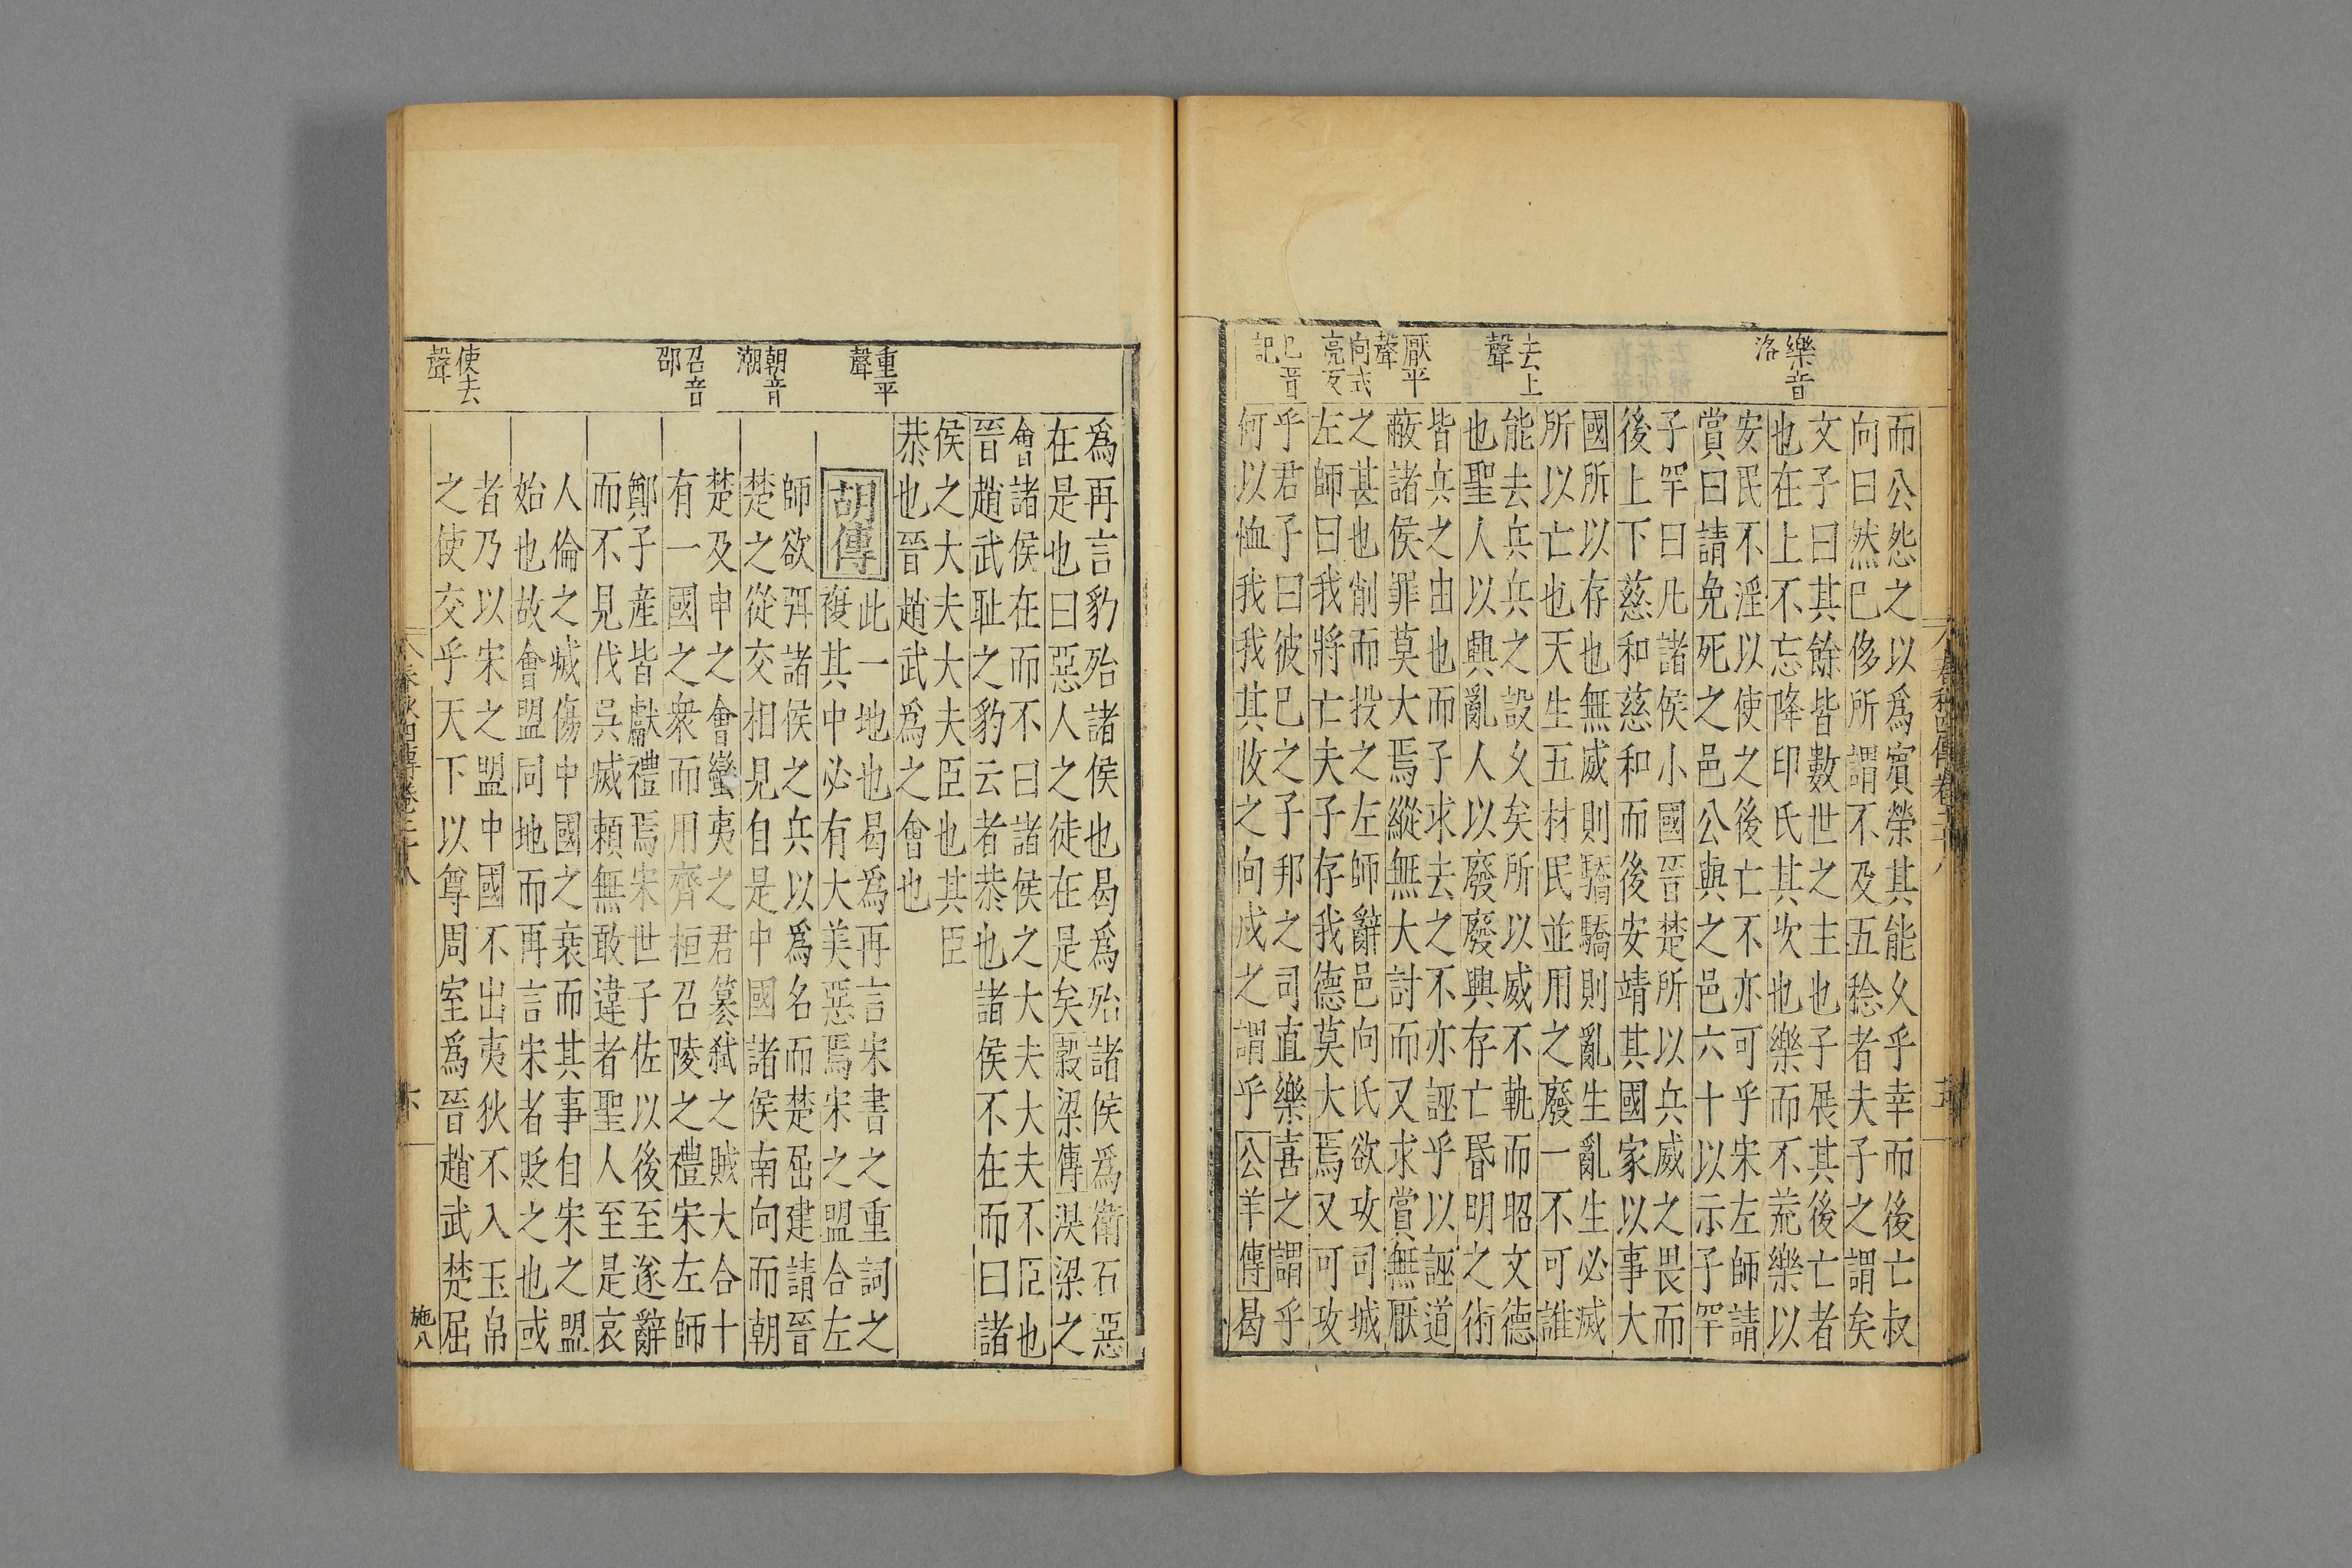 樂音洛
去上聲
厭平聲
向式亮反
己音記
而公怨之以爲賓榮其能乆乎幸而後亡叔
向曰然巳侈所謂不及五稔者夫子之謂矣
文子曰其餘皆數世之主也子展其後亡者
也在上不忘降印氏其次也樂而不荒樂以
安民不淫以使之後亡不亦可乎宋左師請
賞曰請免死之邑公與之邑六十以示子罕
子罕曰凡諸侯小國晉楚所以兵威之畏而
後上下慈和慈和而後安靖其國家以事大
國所以存也無威則驕驕則亂生亂生必滅
所以亡也天生五材民並用之廢一不可誰
能去兵兵之設乆矣所以威不軌而昭文德
也聖人以興亂人以廢廢興存亡昬明之術
皆兵之由也而子求去之不亦誣乎以誣道
蔽諸侯罪莫大焉縱無大討而又求賞無厭
之甚也削而投之左師辭邑向氏欲攻司城
左師曰我將亡夫子存我德莫大焉又可攻
乎君子曰彼巳之子邦之司直樂喜之謂乎
何以恤我我其收之向戌之謂乎公羊傳曷
重平聲
朝音潮
召音邵
使去聲
爲再言豹殆諸侯也曷爲殆諸侯爲衛石惡
在是也曰惡人之徒在是矣穀梁傳溴梁之
會諸侯在而不曰諸侯之大夫大夫不臣也
晉趙武耻之豹云者恭也諸侯不在而曰諸
侯之大夫大夫臣也其臣
恭也晉趙武爲之會也
胡傳
此一地也曷爲再言宋書之重詞之
複其中必有大美惡焉宋之盟合左
師欲弭諸侯之兵以爲名而楚屈建請晉
楚之從交相見自是中國諸侯南向而朝
楚及申之會蠻夷之君簒弒之賊大合十
有一國之衆而用齊桓召陵之禮宋左師
鄭子產皆獻禮焉宋世子佐以後至遂辭
而不見伐吳滅賴無敢違者聖人至是哀
人倫之滅傷中國之衰而其事自宋之盟
始也故會盟同地而再言宋者貶之也或
者乃以宋之盟中國不出夷狄不入玉帛
之使交乎天下以尊周室爲晉趙武楚屈
施八